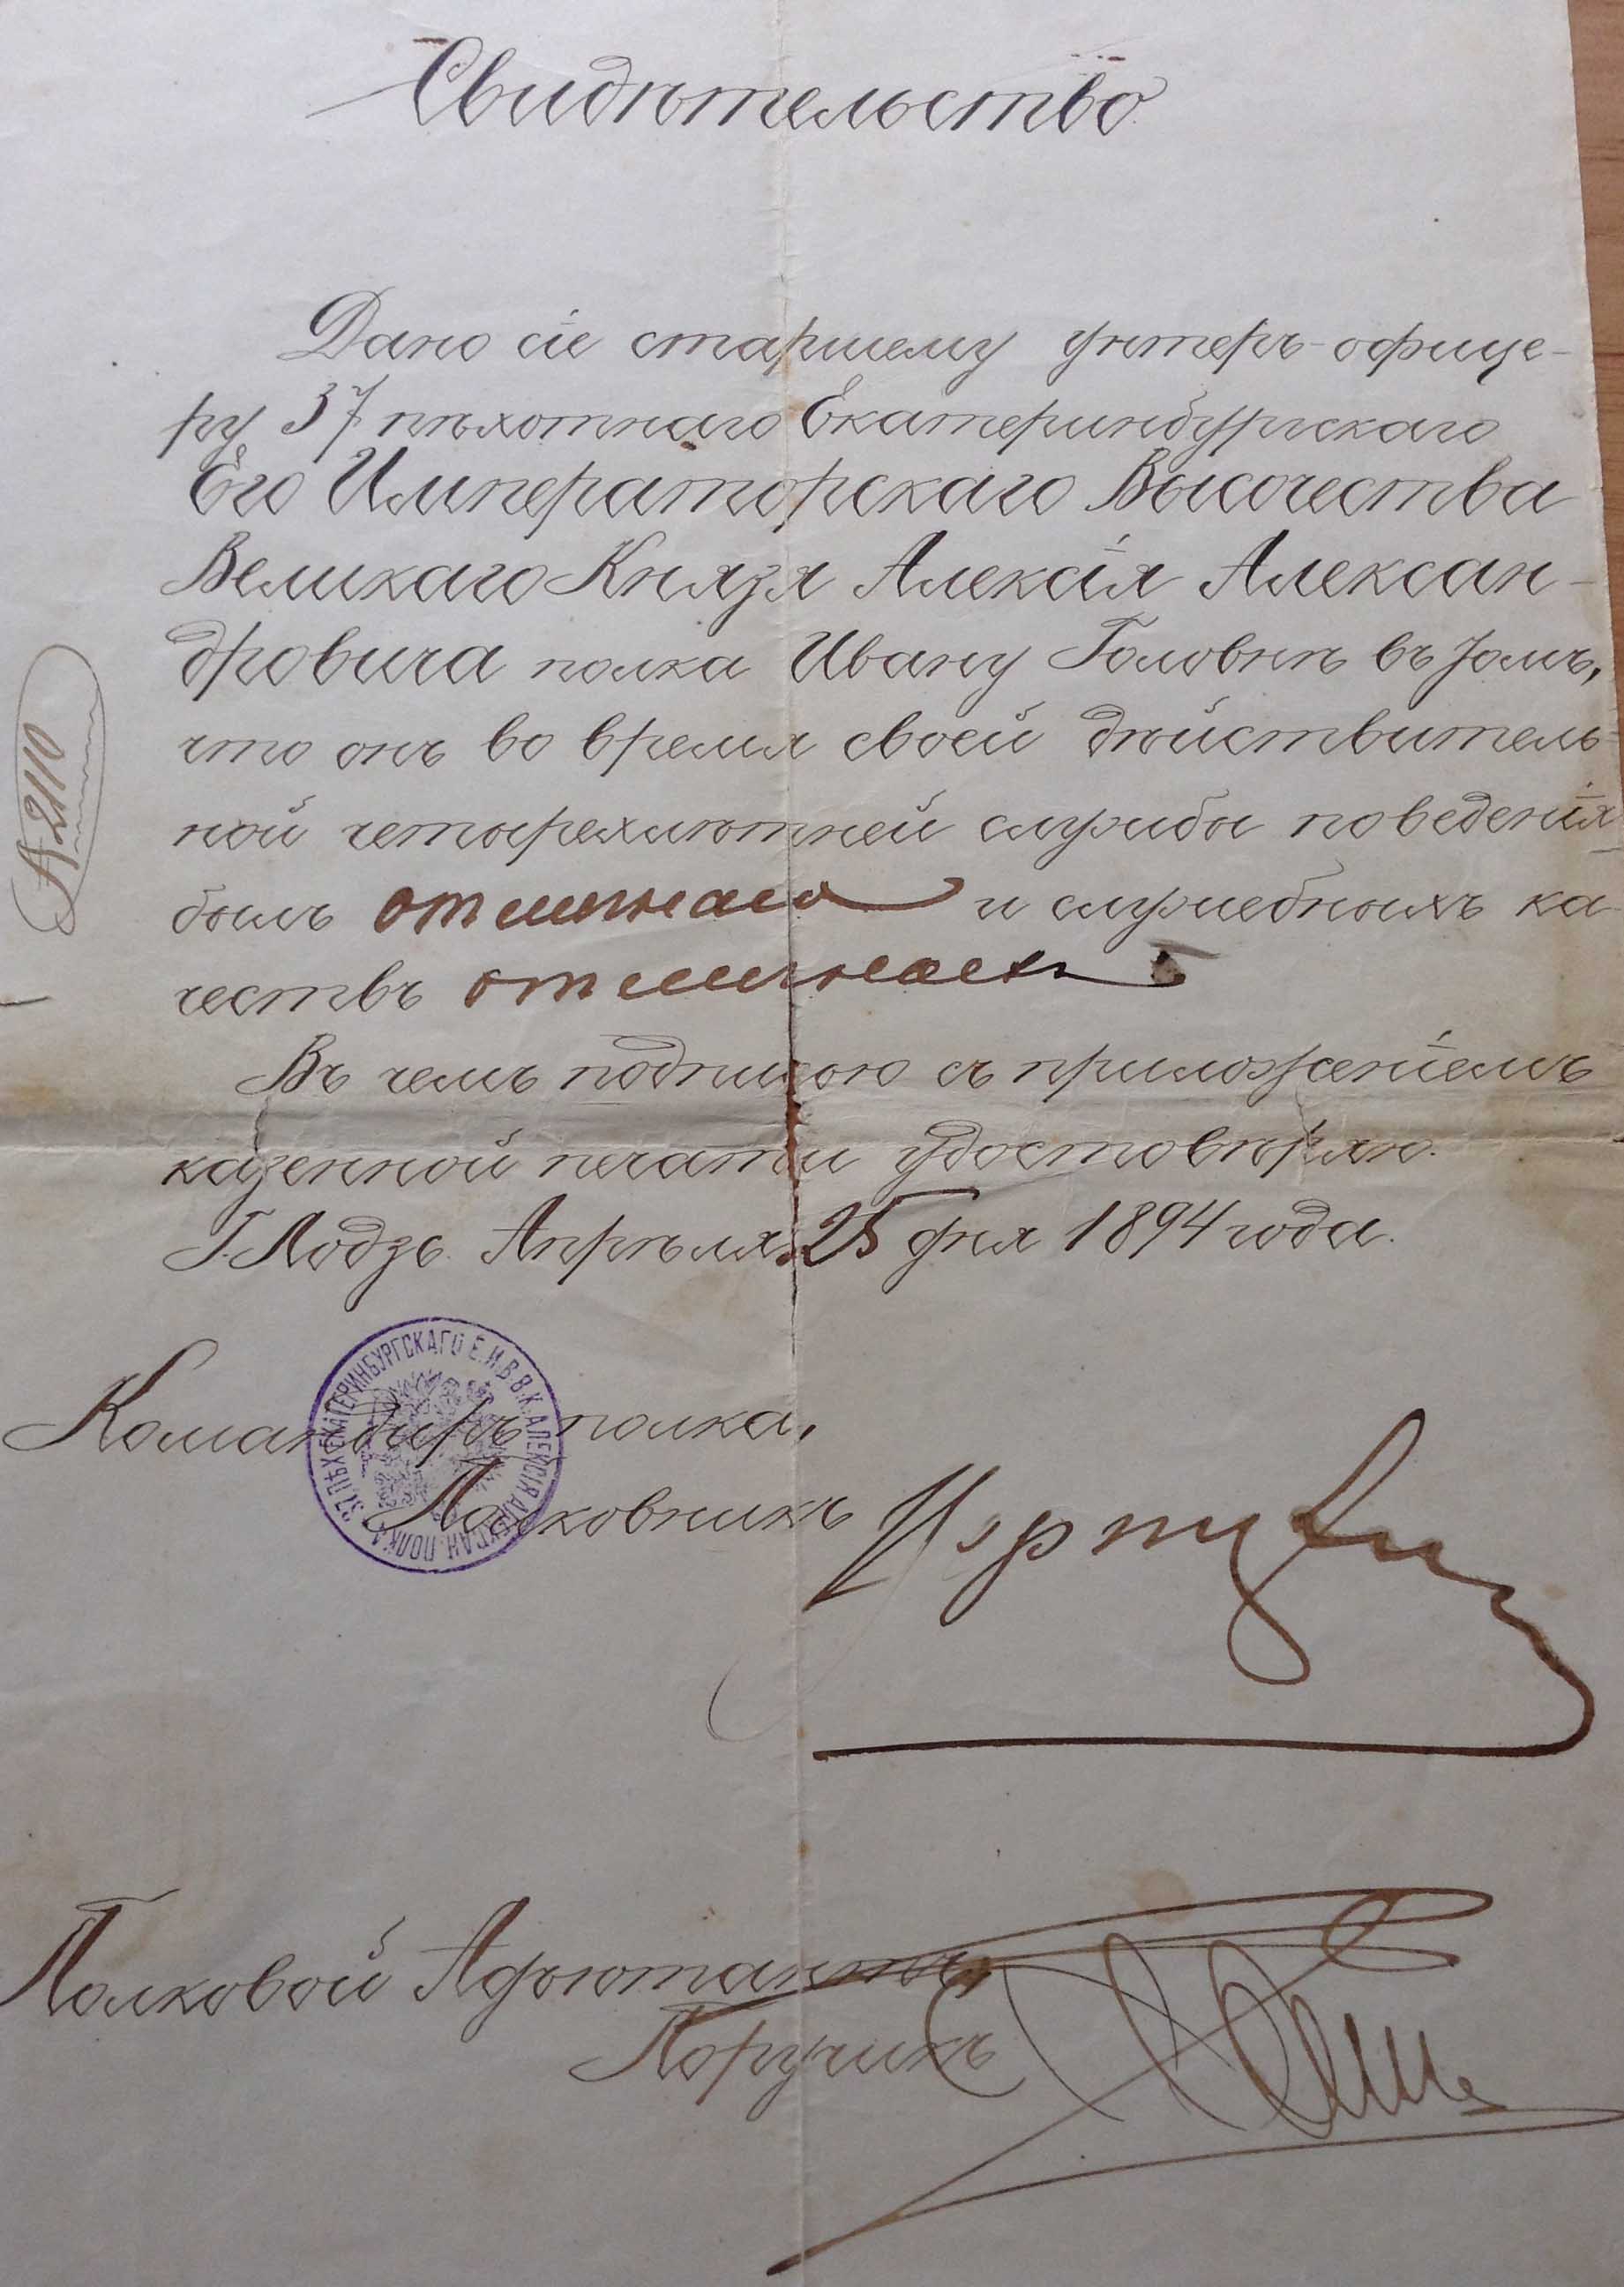 Свидѣтельство
Дано сіе старшему унтеръ-офице-
ру 37 пѣхотнаго Екатеринбургскаго
Его Императорскаго Высочества
Великаго Князя Алексія Алексан-
дровича полка Ивану Головнѣ въ томъ,
что онъ во время своей дѣйствитель-
ной четырехлѣтней службы поведенія
былъ отличнаго и служебныхъ ка-
чествъ отличныхъ
Въ чемъ подписью съ приложеніемъ
казенной печати удостовѣряю.
Г. Лодзь. Апрѣля 25 дня 1894 года.
№ 2110
37 ПѢХ. ЕКАТЕРИНБУРГСКАГО Е.И.В.В.К. АЛЕКСІЯ АЛЕКСАН. ПОЛКА
Командиръ полка,
Полковникъ
Полковой Адъютантъ,
Поручикъ